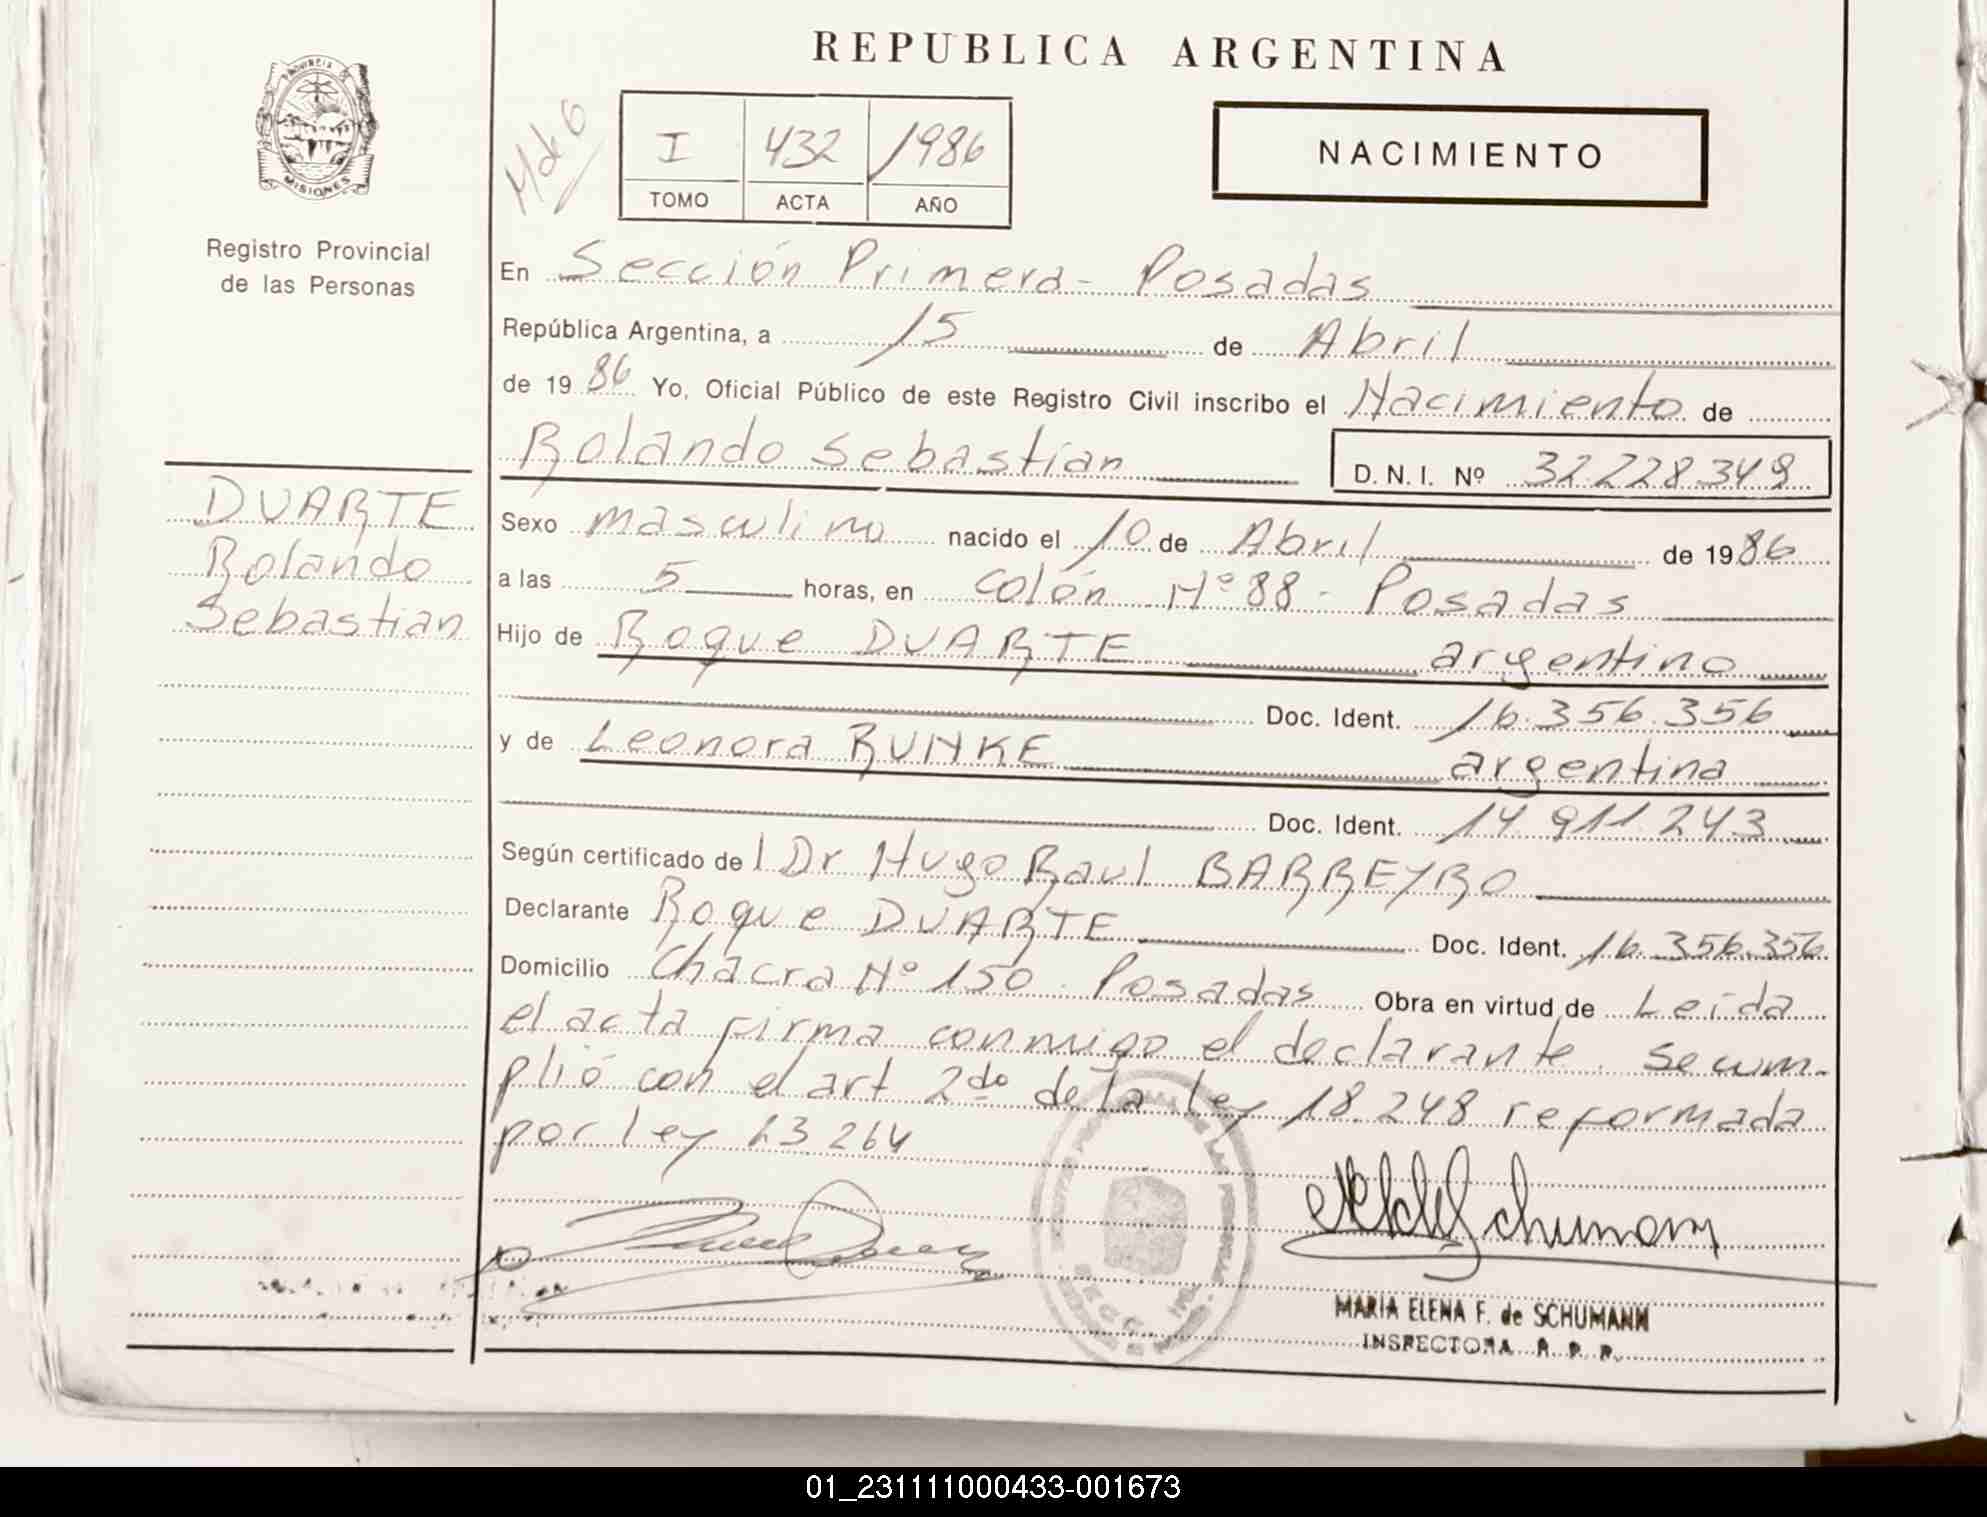 REPUBLICA ARGENTINA
PROVINCIA DE
MISIONES
Registro Provincial
de las Personas
M de G
I 432 1986
TOMO ACTA AÑO
NACIMIENTO
En Sección Primera - Posadas
República Argentina, a 15 de Abril
de 1986 Yo, Oficial Público de este Registro Civil inscribo el Nacimiento de
Rolando Sebastian D.N.I. Nº 32.228.349
DUARTE
Rolando
Sebastian
Sexo masculino nacido el 10 de Abril de 1986
a las 5 horas, en Colón Nº 88 - Posadas
Hijo de Roque DUARTE argentino
Doc. Ident. 16.356.356
y de Leonora RUNKE argentina
Doc. Ident. 14.911.243
Según certificado de l Dr Hugo Raul BARREYRO
Declarante Roque DUARTE Doc. Ident. 16.356.356
Domicilio Chacra Nº 150 - Posadas Obra en virtud de Leida
el acta firma conmigo el declarante. Se cum-
plió con el art 2do de la ley 18.248 reformada
por ley 23264
MARIA ELENA F. de SCHUMANN
INSPECTORA R. P. P.
01_231111000433-001673